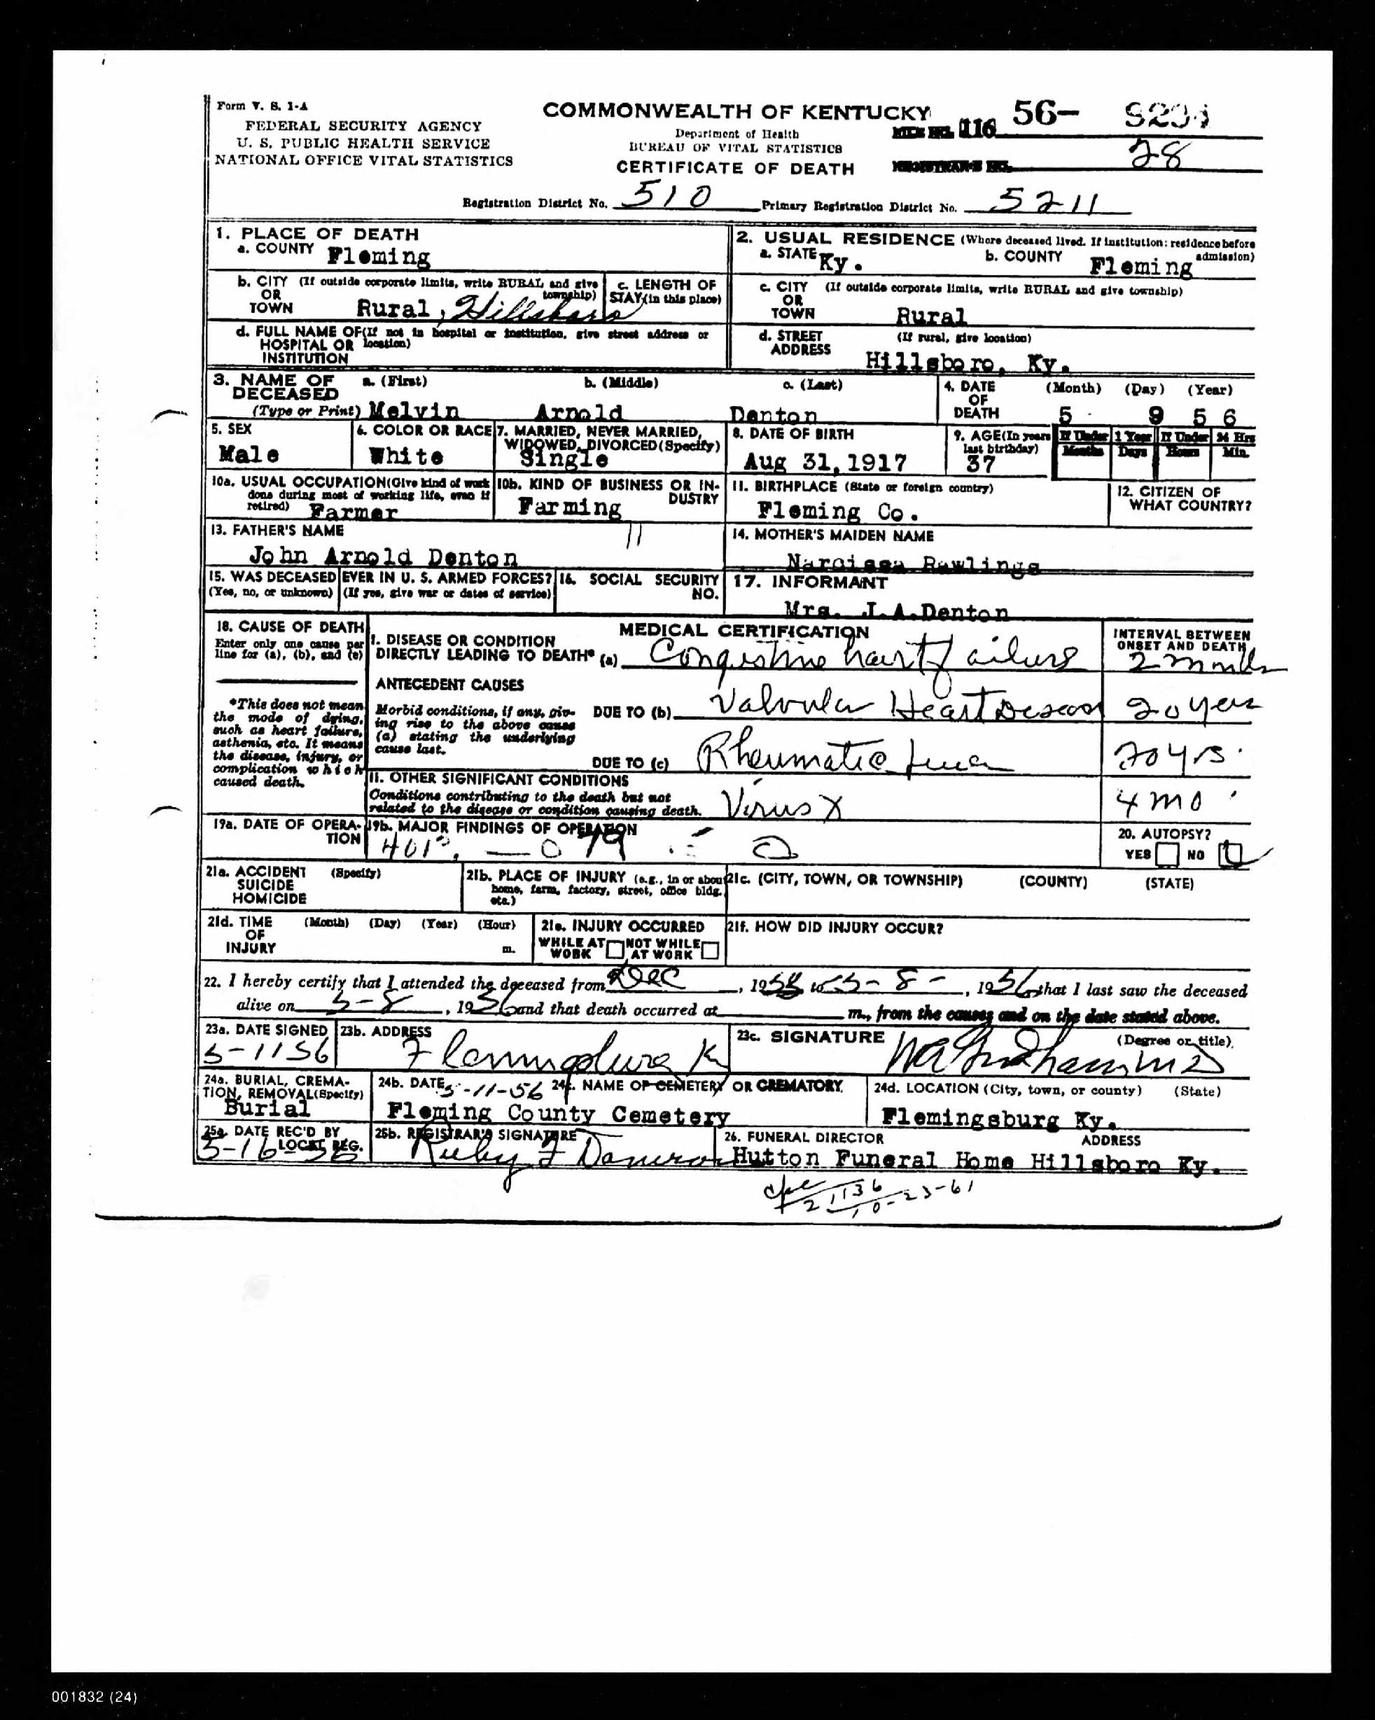 Form V. S. 1-A
FEDERAL SECURITY AGENCY
U. S. PUBLIC HEALTH SERVICE
NATIONAL OFFICE VITAL STATISTICS
COMMONWEALTH OF KENTUCKY
Department of Health
BUREAU OF VITAL STATISTICS
CERTIFICATE OF DEATH
116 56-
28
Registration District No. 510 Primary Registration District No. 5211
1. PLACE OF DEATH
a. COUNTY Fleming
b. CITY (If outside corporate limits, write RURAL and give township)
OR
TOWN Rural, Hillsboro
c. LENGTH OF STAY (in this place)
d. FULL NAME OF (If not in hospital or institution, give street address or location)
HOSPITAL OR
INSTITUTION
2. USUAL RESIDENCE (Where deceased lived. If institution: residence before admission)
a. STATE Ky. b. COUNTY Fleming
c. CITY (If outside corporate limits, write RURAL and give township)
OR
TOWN Rural
d. STREET (If rural, give location)
ADDRESS Hillsboro, Ky.
3. NAME OF DECEASED
(Type or Print)
a. (First) b. (Middle) c. (Last)
Melvin Arnold Denton
4. DATE OF DEATH (Month) (Day) (Year)
5 9 56
5. SEX
Male
6. COLOR OR RACE
White
7. MARRIED, NEVER MARRIED, WIDOWED, DIVORCED (Specify)
Single
8. DATE OF BIRTH
Aug 31, 1917
9. AGE (In years last birthday)
37
If Under 1 Year If Under 24 Hrs
Months Days Hours Min.
10a. USUAL OCCUPATION (Give kind of work done during most of working life, even if retired)
Farmer
10b. KIND OF BUSINESS OR INDUSTRY
Farming
11. BIRTHPLACE (State or foreign country)
Fleming Co.
12. CITIZEN OF WHAT COUNTRY?
13. FATHER'S NAME
John Arnold Denton
14. MOTHER'S MAIDEN NAME
Narcissa Rawlings
15. WAS DECEASED EVER IN U. S. ARMED FORCES?
(Yes, no, or unknown) (If yes, give war or dates of service)
16. SOCIAL SECURITY NO.
17. INFORMANT
Mrs. J.A.Denton
18. CAUSE OF DEATH
Enter only one cause per line for (a), (b), and (c)
*This does not mean the mode of dying, such as heart failure, asthenia, etc. It means the disease, injury, or complication which caused death.
MEDICAL CERTIFICATION
INTERVAL BETWEEN ONSET AND DEATH
I. DISEASE OR CONDITION
DIRECTLY LEADING TO DEATH* (a) Congestive heart failure 2 months
ANTECEDENT CAUSES
Morbid conditions, if any, giving rise to the above cause (a) stating the underlying cause last.
DUE TO (b) Valvular Heart Disease 20 years
DUE TO (c) Rheumatic fever 20 yrs.
II. OTHER SIGNIFICANT CONDITIONS
Conditions contributing to the death but not related to the disease or condition causing death. Virus X 4 mo
19a. DATE OF OPERATION
19b. MAJOR FINDINGS OF OPERATION
20. AUTOPSY?
YES NO
21a. ACCIDENT (Specify)
SUICIDE
HOMICIDE
21b. PLACE OF INJURY (e.g., in or about home, farm, factory, street, office bldg. etc.)
21c. (CITY, TOWN, OR TOWNSHIP) (COUNTY) (STATE)
21d. TIME OF INJURY (Month) (Day) (Year) (Hour) m.
21e. INJURY OCCURRED
WHILE AT WORK NOT WHILE AT WORK
21f. HOW DID INJURY OCCUR?
22. I hereby certify that I attended the deceased from Dec , 1955 to 5-8-, 1956 that I last saw the deceased
alive on 5-8, 1956 and that death occurred at m., from the causes and on the date stated above.
23a. DATE SIGNED
5-11 56
23b. ADDRESS
Flemingsburg Ky
23c. SIGNATURE (Degree or title)
24a. BURIAL, CREMATION, REMOVAL (Specify)
Burial
24b. DATE 5-11-56
24c. NAME OF CEMETERY OR CREMATORY
Fleming County Cemetery
24d. LOCATION (City, town, or county) (State)
Flemingsburg Ky.
25a. DATE REC'D BY LOCAL REG.
5-16-56
25b. REGISTRAR'S SIGNATURE
Ruby F
26. FUNERAL DIRECTOR ADDRESS
Hutton Funeral Home Hillsboro Ky.
10-23-61
001832 (24)